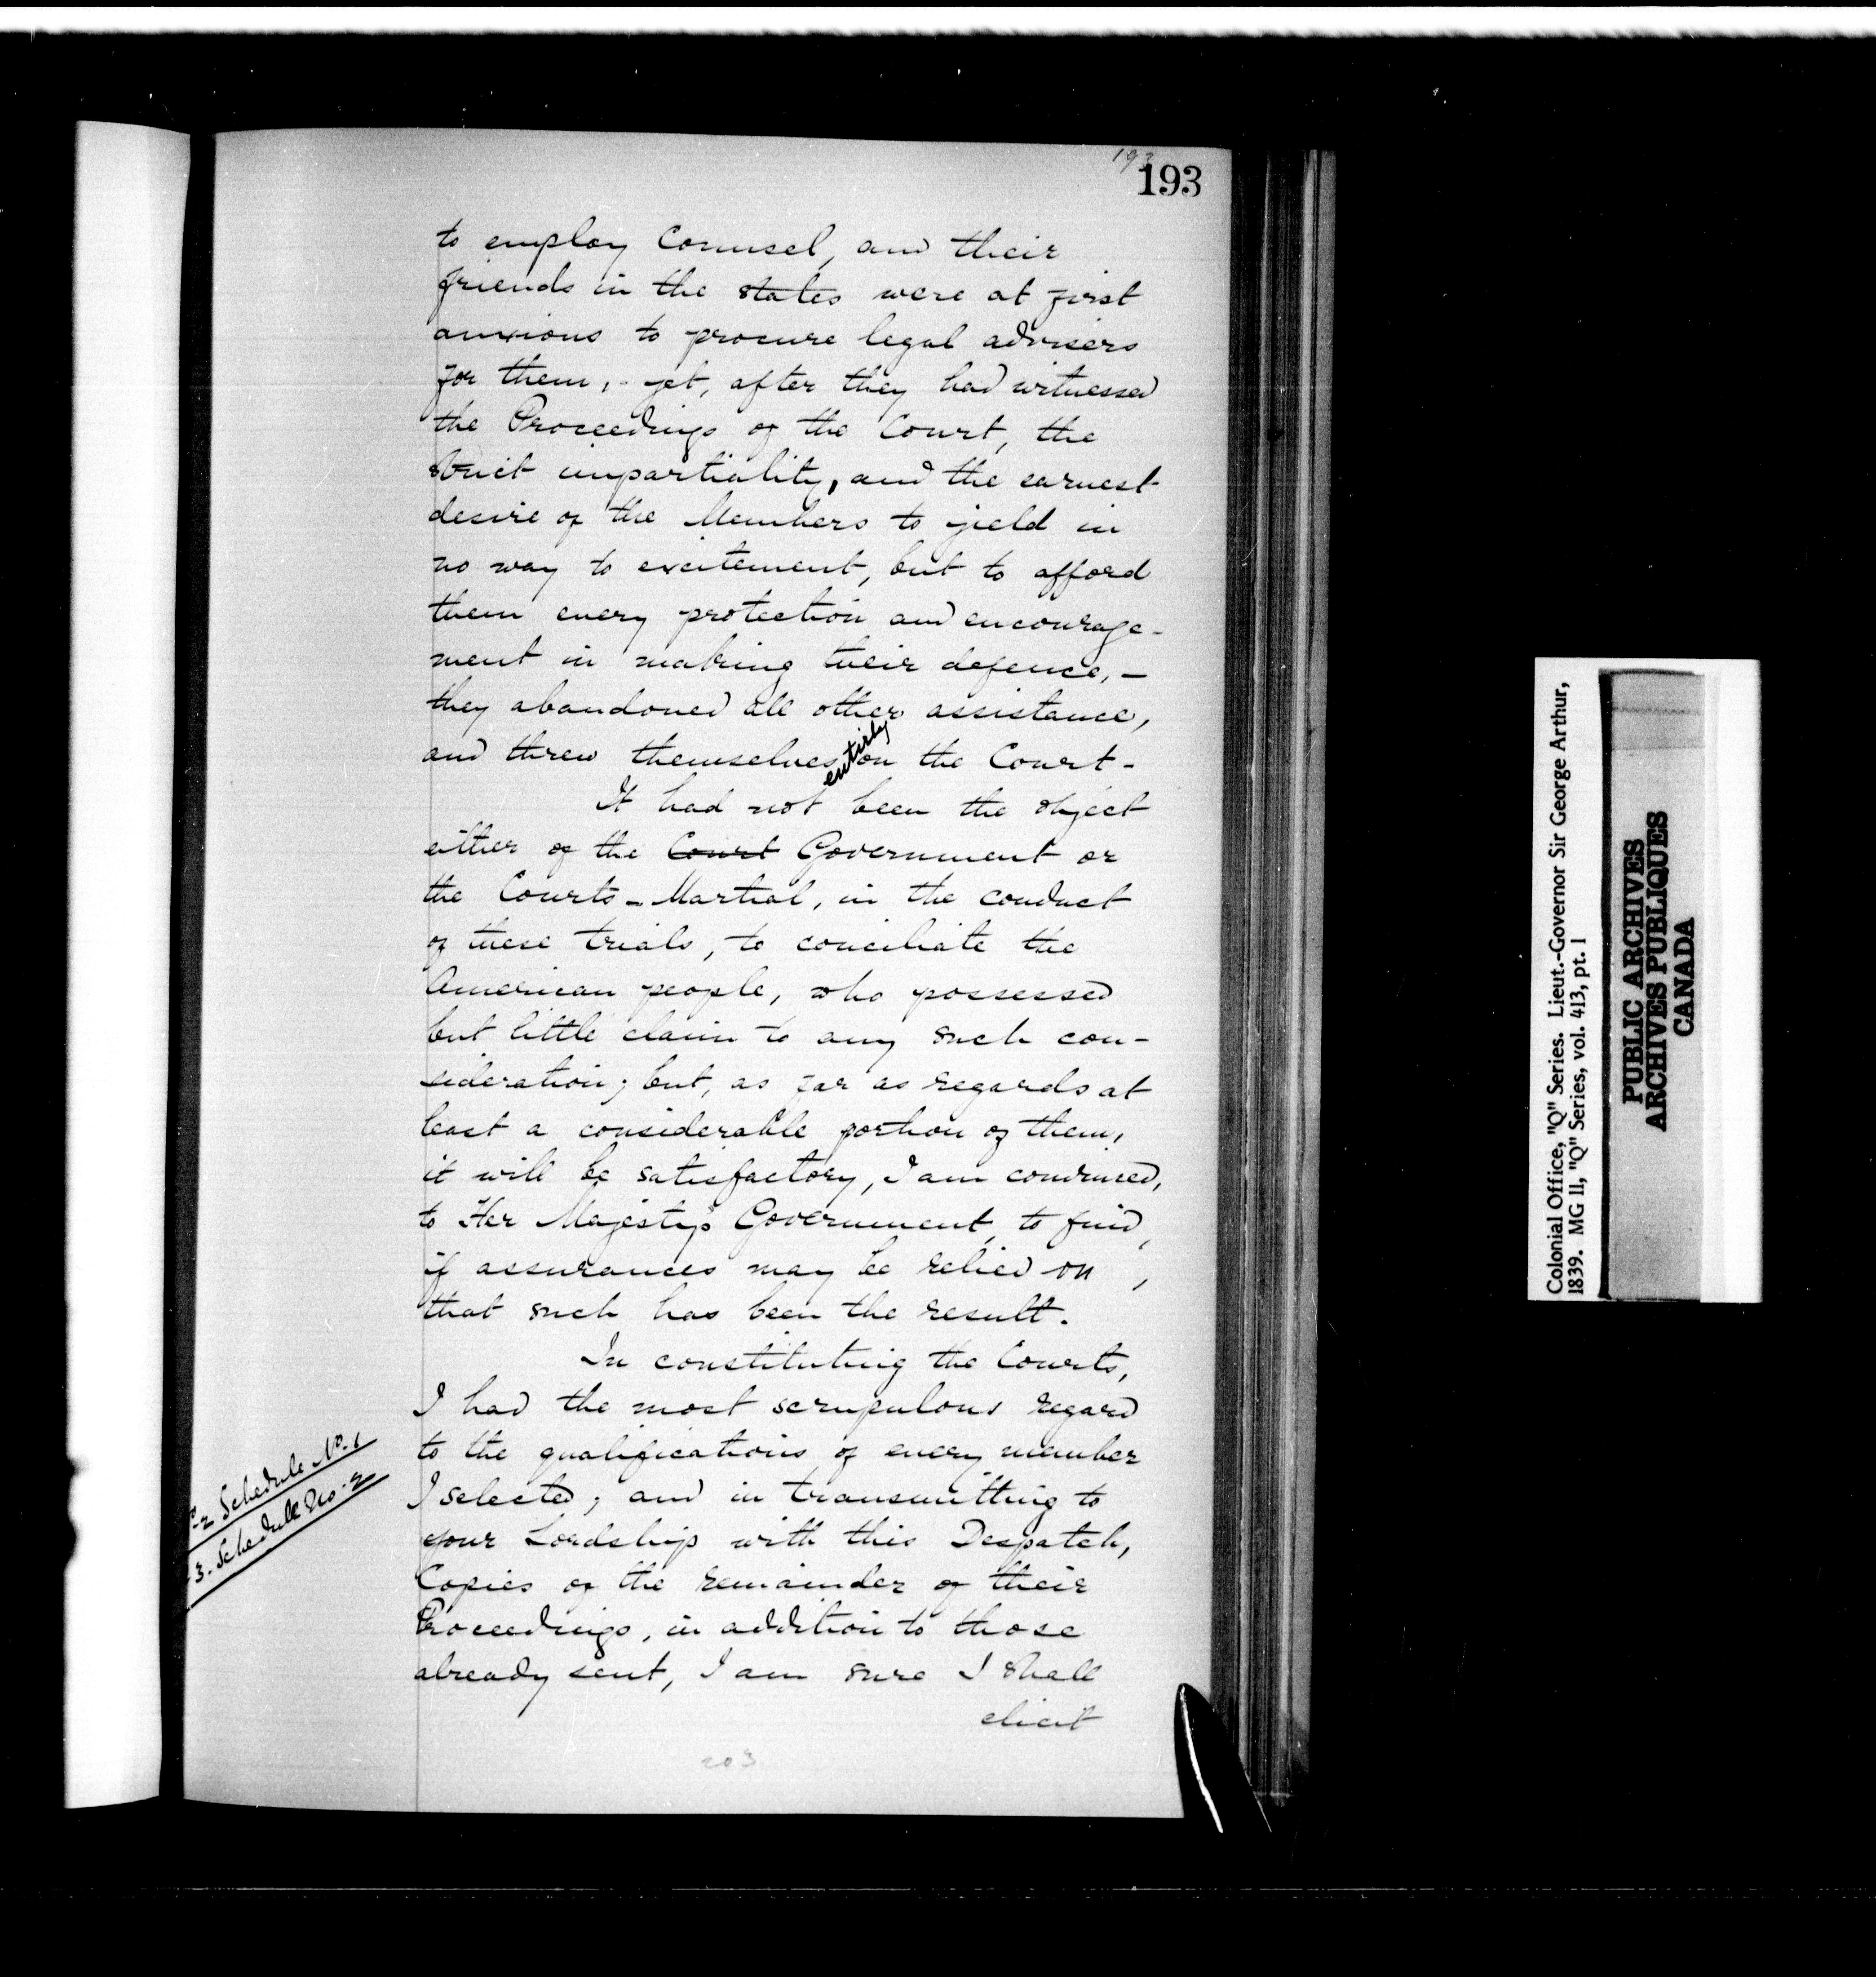 193
193
to employ Counsel, and their
friends in the states were at first
anxious to procure legal advisers
for them, - yet, after they had witnessed
the Proceedings of the Court, the
strict impartiality, and the earnest
desire of the Members to yield in
no way to excitement, but to afford
them every protection and encourage-
ment in making their defence, -
they abandoned all other assistance,
and threw themselves entirly on the Court -
It had not been the object
either of the Court Government or
the Courts - Martial, in the conduct
of these trials, to conciliate the
American people, who possessed
but little claim to any such con-
sideration; but, as far as regards at
least a considerable portion of them,
it will be satisfactory, I am convinced,
to Her Majesty's Government, to find,
if assurances may be relied on,
that such has been the result.
In constituting the Courts,
I had the most scrupulous regard
to the qualifications of every member
I selected; and in transmitting to
your Lordship with this Despatch,
Copies of the remainder of their
Proceedings, in addition to those
already sent, I am sure I shall
elicit
2 Schedule No. 1
3. Schedule No. 2
203
Colonial Office, "Q" Series. Lieut.-Governor Sir George Arthur,
1839. MG 11, "Q" Series, vol. 413, pt. 1
PUBLIC ARCHIVES
ARCHIVES PUBLIQUES
CANADA